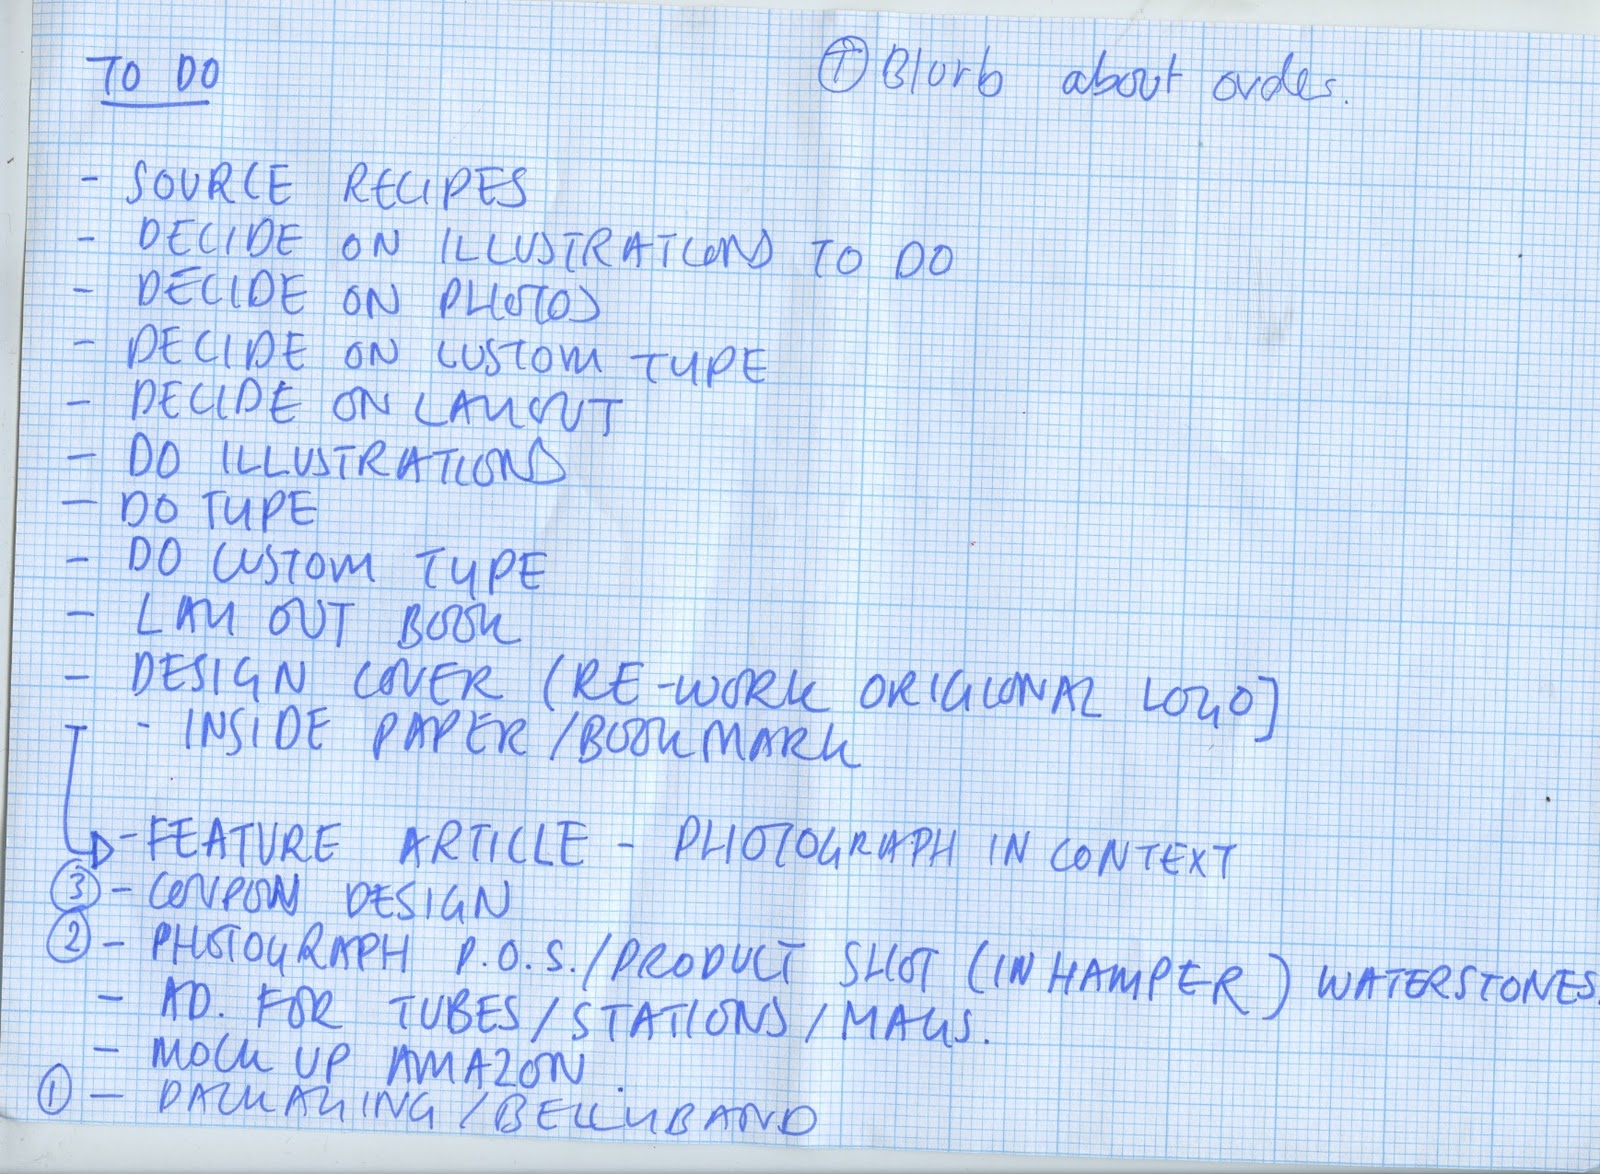 TO DO
① Blurb about orders.
- SOURCE RECIPES
- DECIDE ON ILLUSTRATIONS TO DO
- DECIDE ON PHOTOS
- DECIDE ON CUSTOM TYPE
- DECIDE ON LAYOUT
- DO ILLUSTRATIONS
- DO TYPE
- DO CUSTOM TYPE
- LAY OUT BOOK
- DESIGN COVER (RE-WORK ORIGIONAL LOGO]
- INSIDE PAPER/BOOKMARK
- FEATURE ARTICLE - PHOTOGRAPH IN CONTEXT
③ - COUPON DESIGN
② - PHOTOGRAPH P.O.S./PRODUCT SHOT (IN HAMPER) WATERSTONES.
- AD. FOR TUBES/STATIONS/MAGS.
- MOCK UP AMAZON.
① - PACKAGING/BELLYBAND